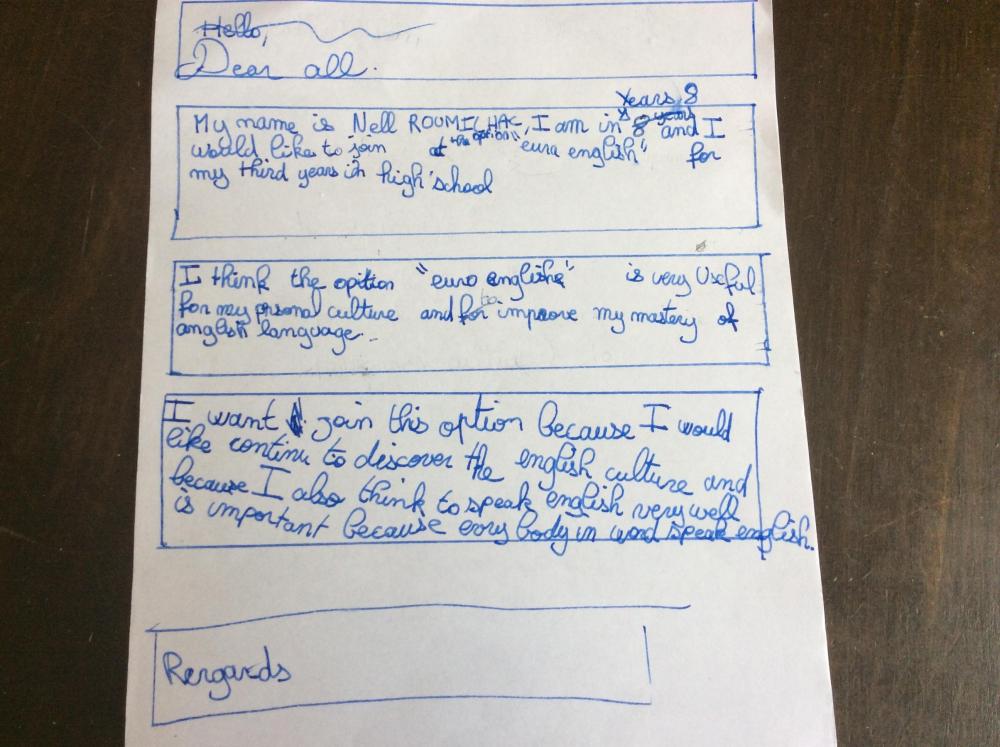 Hello,
Dear all.
Years 8
My name is Nell ROUMILHAC, I am in 8 years and I
would like to join at the option "euro english" for
my third years in high school
I think the opition "euro english" is very Useful
for my personal culture and for to improve my mastery of
english language.
I want join this option because I would
like continu to discover the english culture and
because I also think to speak english very well
is important because every body in word speak english.
Rengards